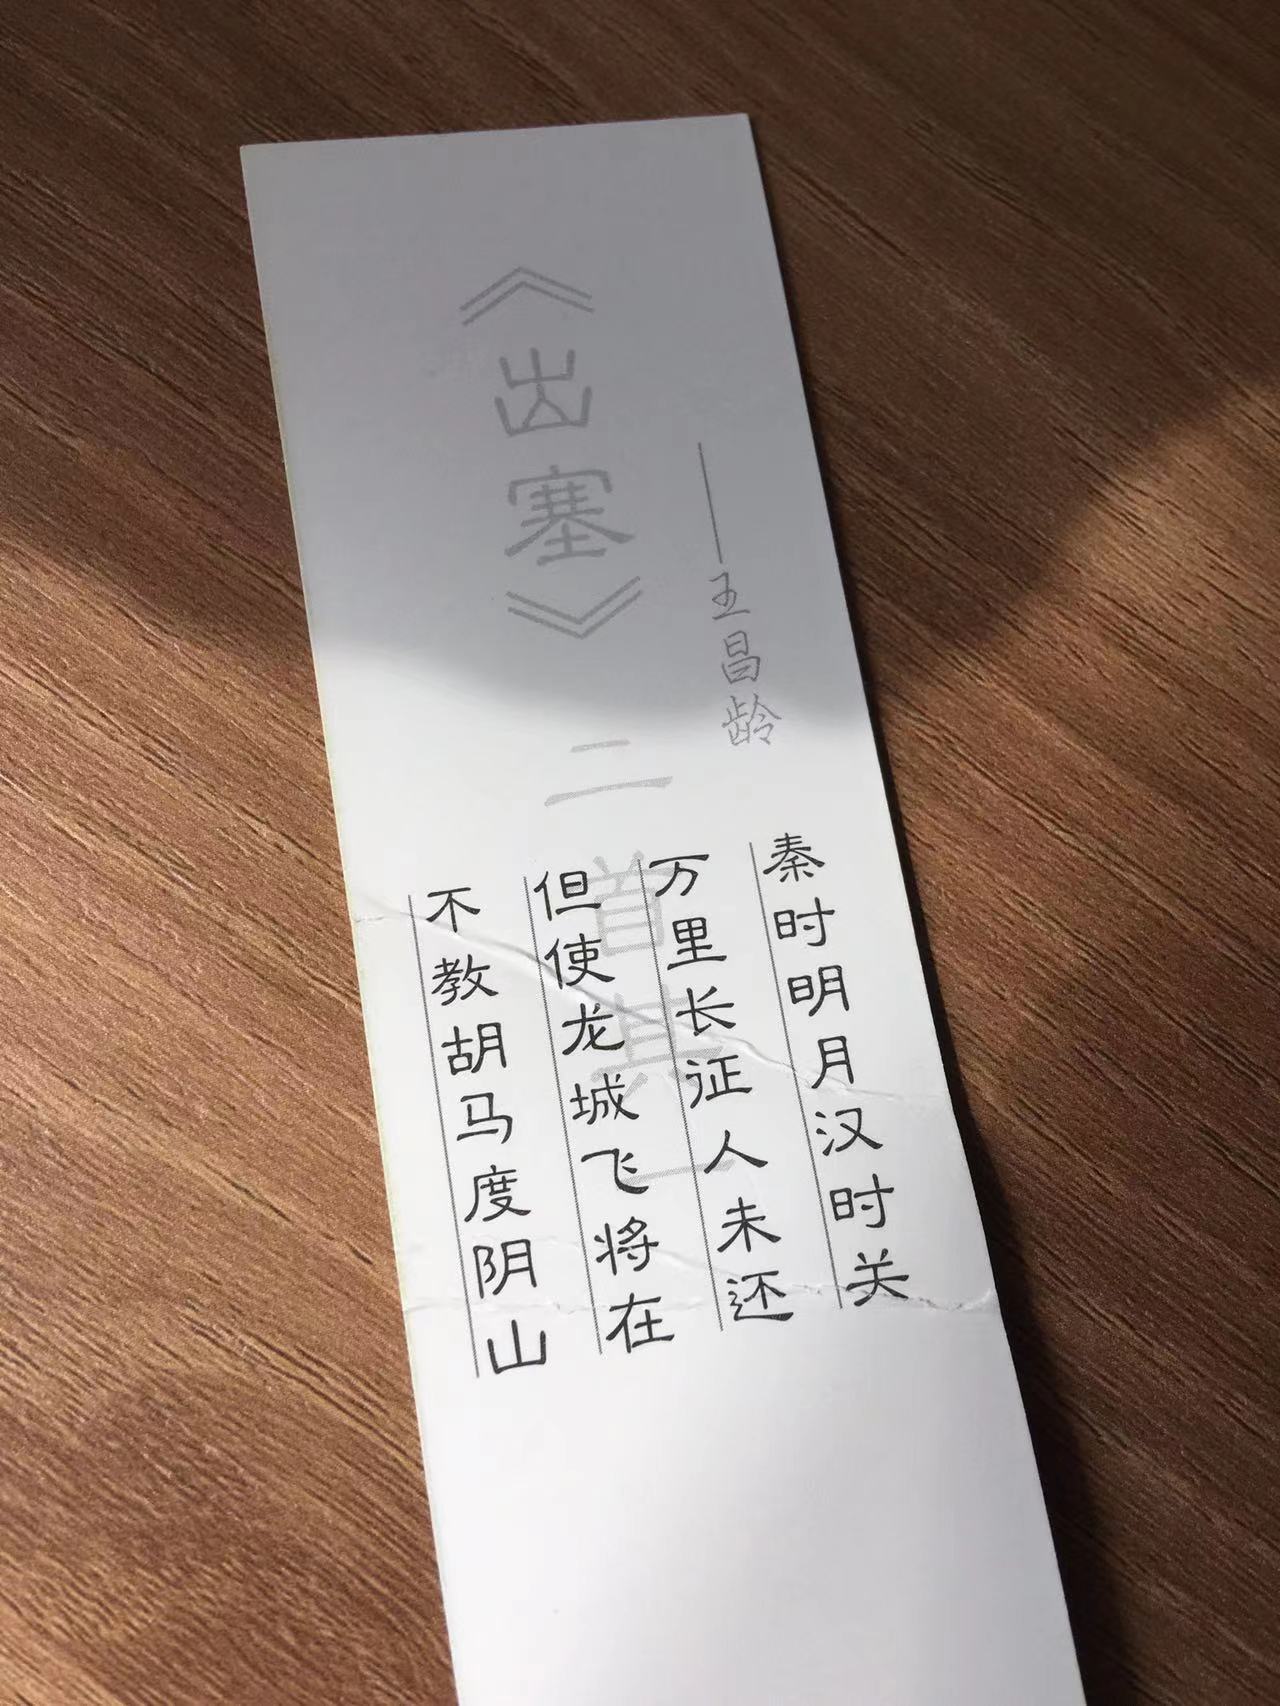 《出塞》二首其一
——王昌龄
秦时明月汉时关
万里长征人未还
但使龙城飞将在
不教胡马度阴山